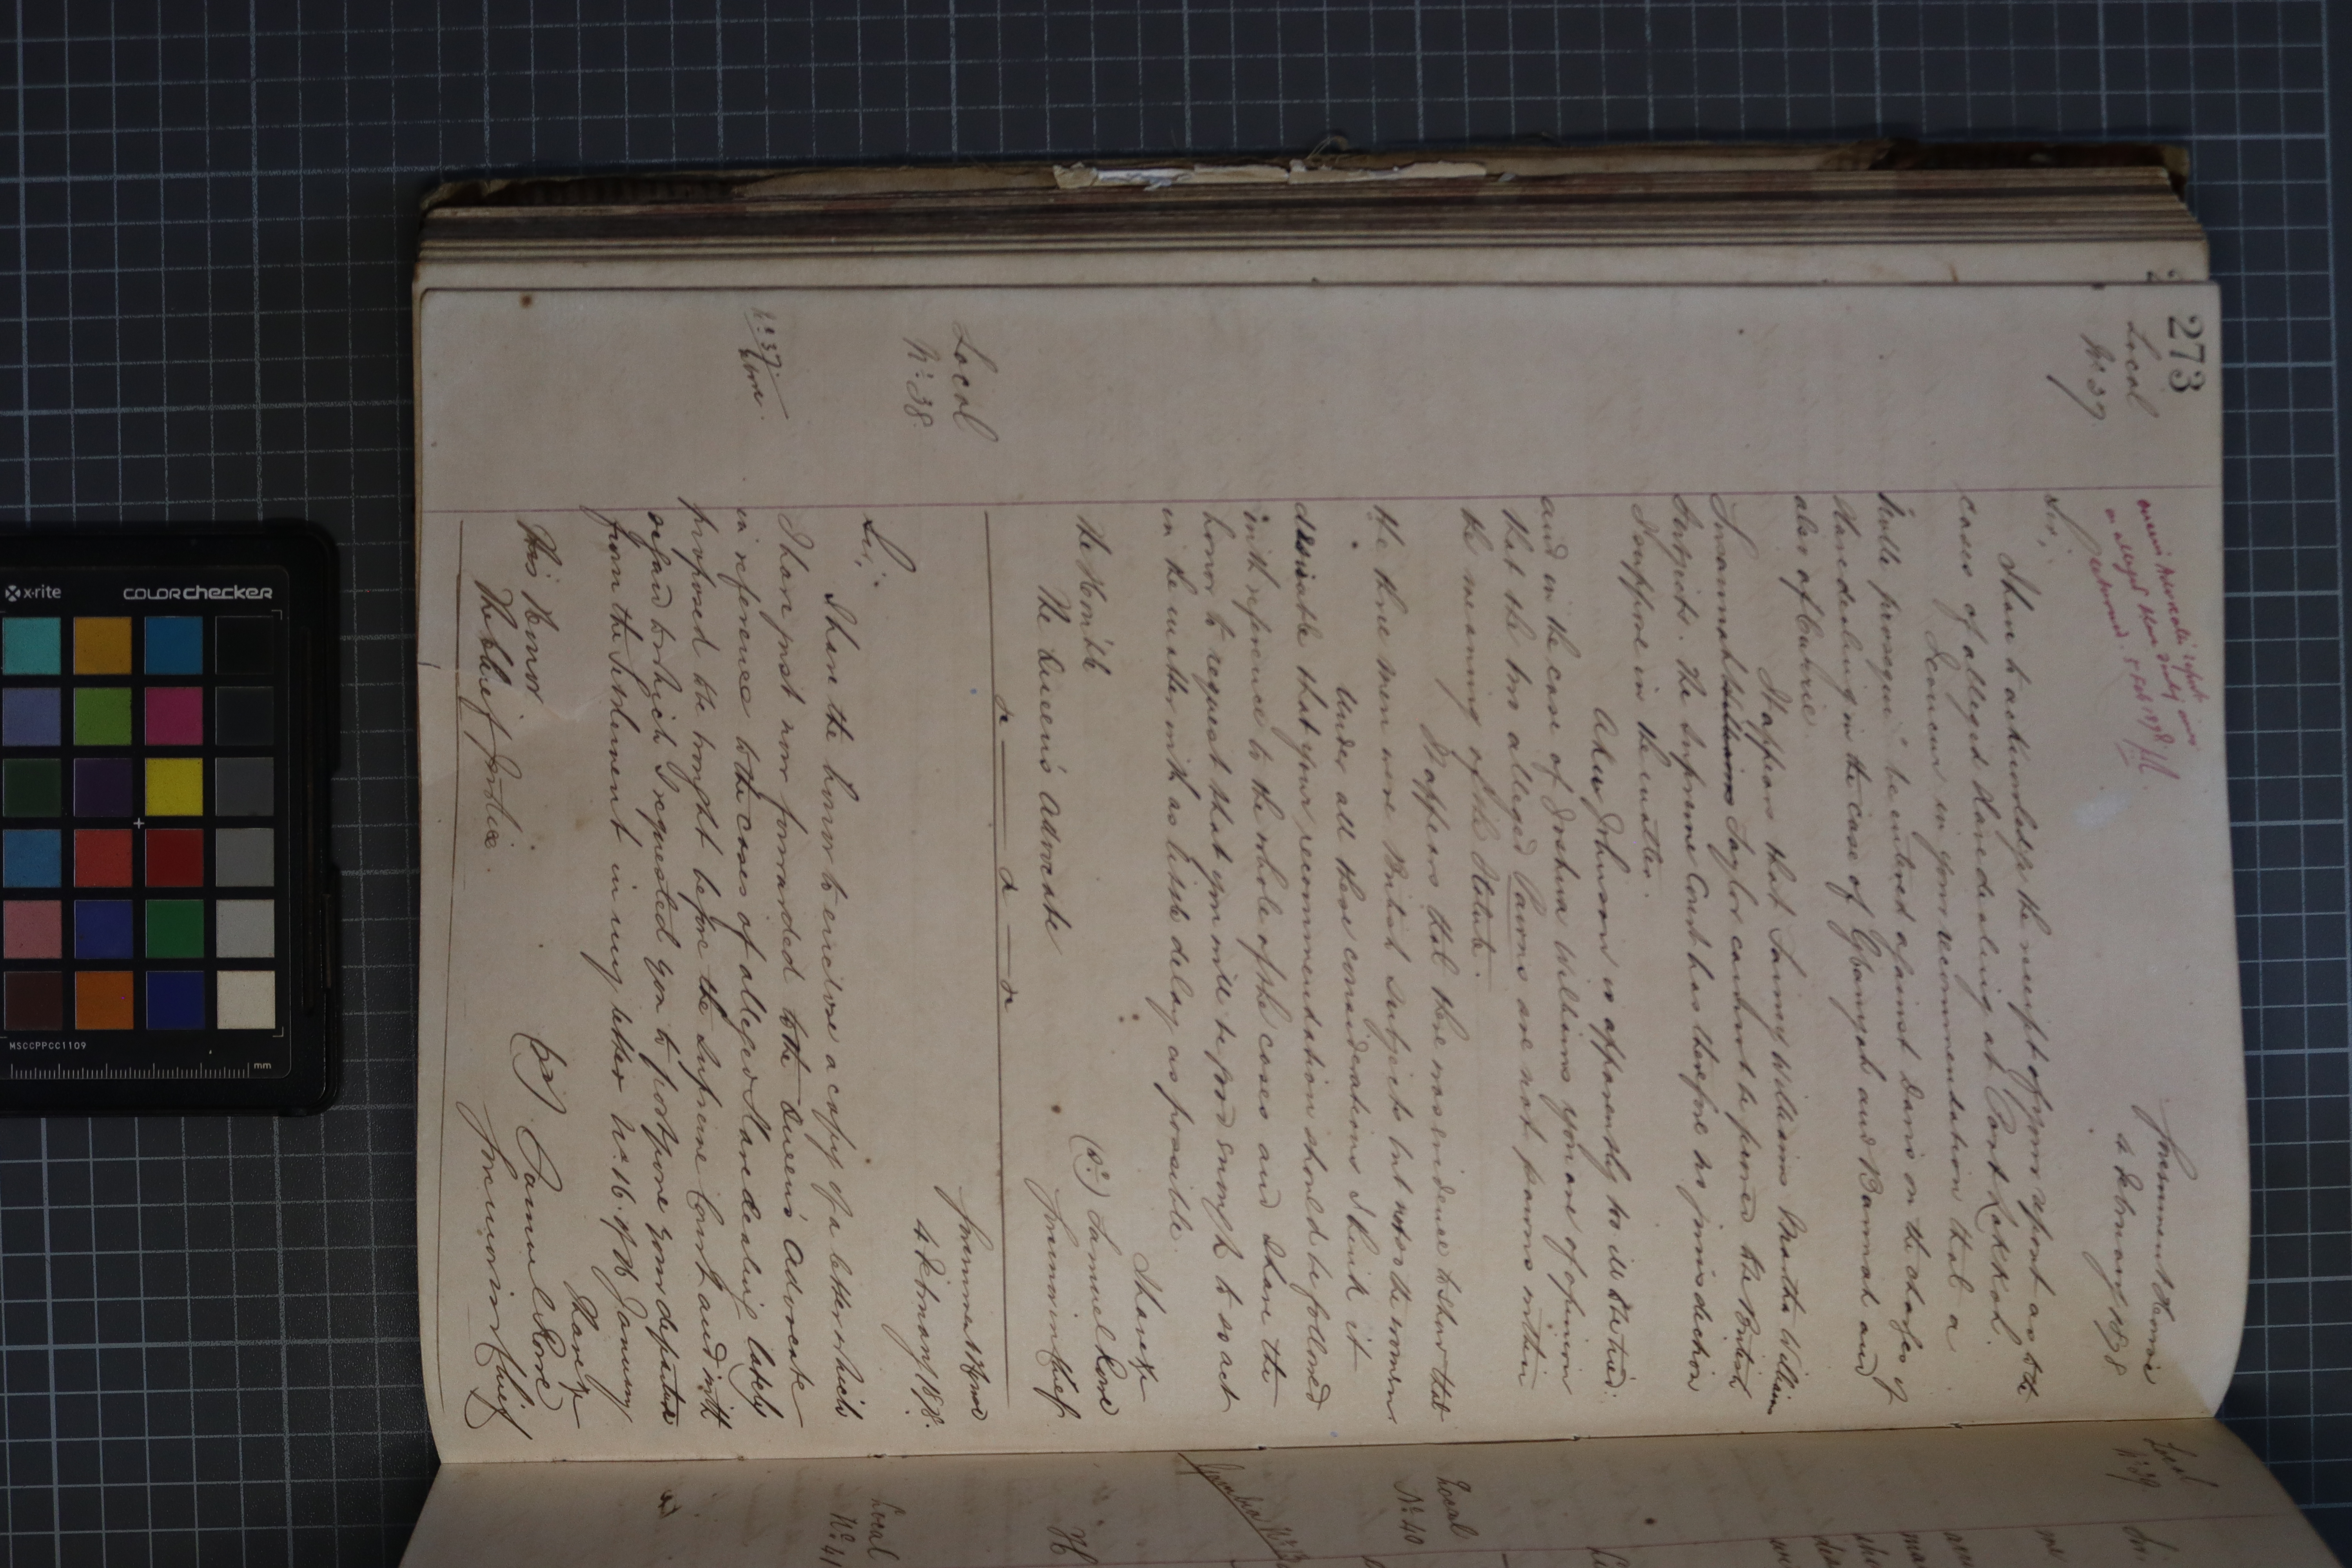 273
Local
No. 37
Queen's Advocate's report
on alleged Slave dealing
returned. 5 Feb 1878
Government House
4 February 1878
Sir,
I have to acknowledge the receipt of your report as to the
cases of alleged slave dealing at Port Lokkoh.
I concur in your recommendation that a
"nolle prosequi" be entered against Davis on the charges of
slave dealing in the case of Gbanyah and Bannah and
also of Curbrie
It appears that Fanny Williams Martha Williams
Susannah Williams Taylor cannot be proved to be British
Subjects. The Supreme Court has therefore no jurisdiction
I suppose in the matter.
Ailey Johnson is apparently too ill to be tried:
and in the case of Joshua Williams you are of opinion
that the two alleged Pawns are not pawns within
the meaning of the Statute.
It appears that there was evidence to shew that
the three men were British Subjects but not so the women
Under all these considerations I think it
desirable that your recommendation should be followed
with reference to the whole of the cases and I have the
honor to request that you will be good enough to so act
in the matter with as little delay as possible.
I have &c
(Sd) Samuel Rowe
Governor in Chief
The Hon'ble
The Queen's Advocate
Local
No. 38
Government House
4 February 1878.
Sir,
I have the honor to enclose a copy of a letter which
No. 37 above.
I have just now forwarded to the Queen's Advocate
in reference to the cases of alleged Slave dealing lately
proposed to be brought before the Supreme Court and with
regard to which I requested you to postpone your departure
from the Settlement in my letter No. 16 of 16 January
I have &c
(Sd) Samuel Rowe
Governor in Chief
His Honor
The Chief Justice.
Local
No. 39
Local
No. 40
Local
No. 41